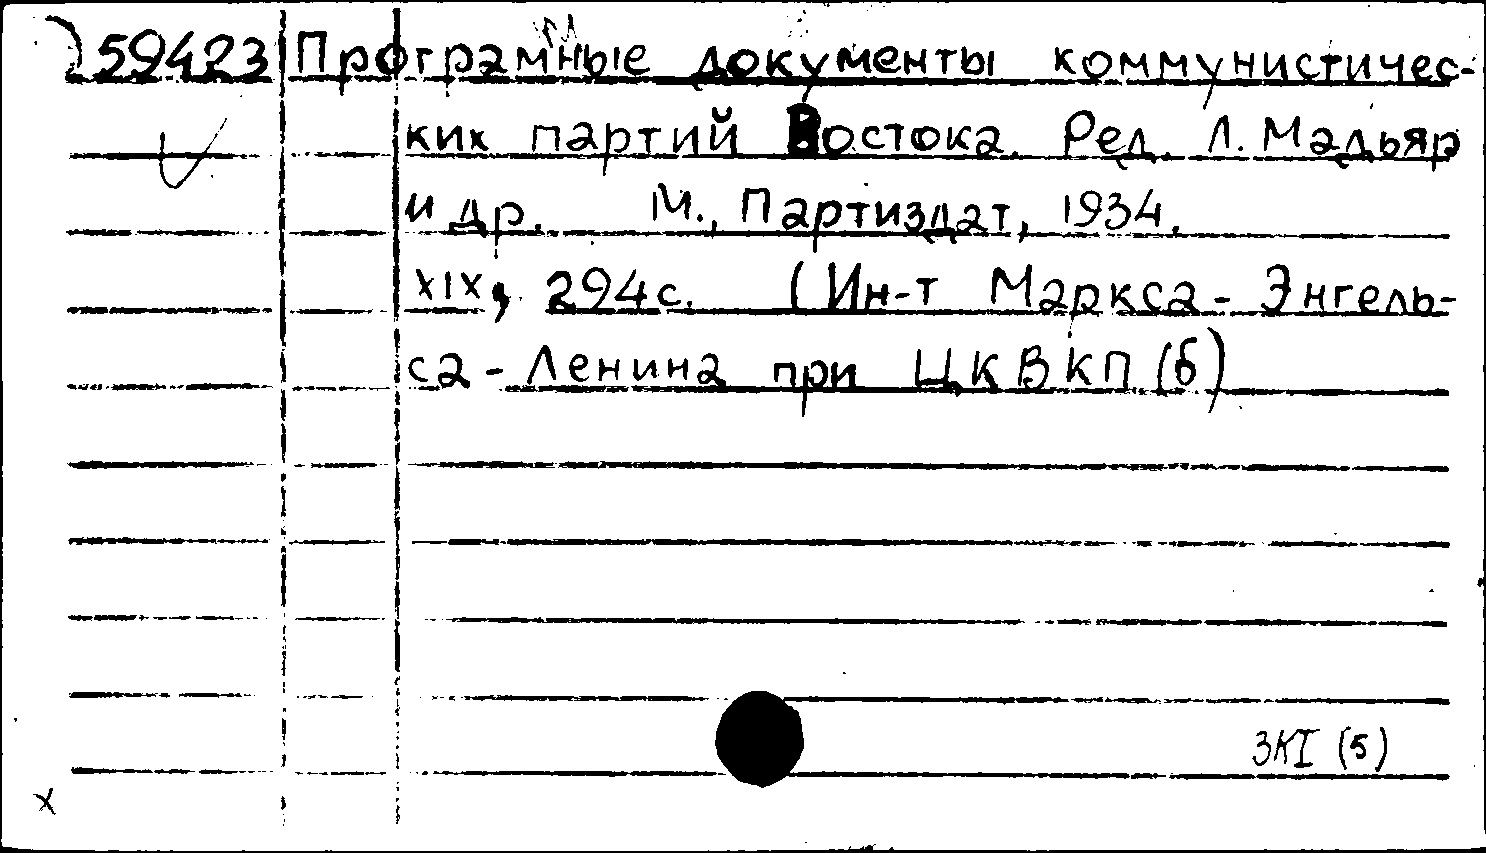 59423 Программные документы коммунистичес-
ких партий Востока. Ред. Л. Мадьяр
и др. М., Партиздат, 1934.
XIX, 294 с. (Ин-т Маркса-Энгель-
са-Ленина при ЦК ВКП(б)
3КI (5)
x